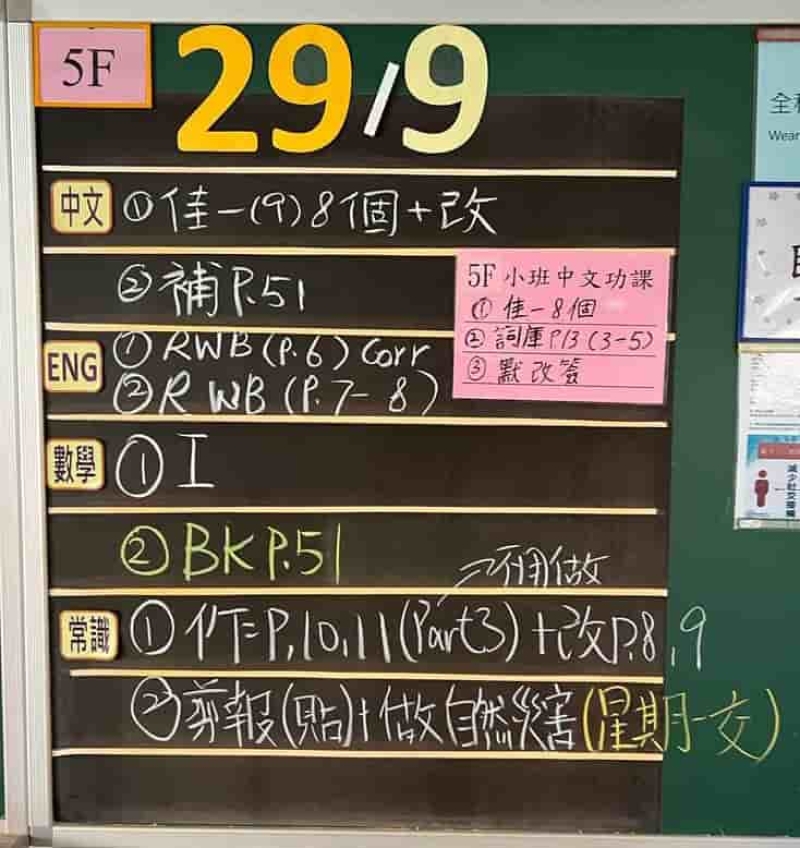 5F
29/9
中文 ①佳一(9)8個+改
②補P.51
5F 小班中文功課
① 佳一8個
② 詞庫P13(3-5)
③ 默改簽
ENG ①RWB(P.6)Corr
②RWB(P.7-8)
數學 ①I
②BK P.51
不用做
常識 ①作=P.10,11(Part3)+改P.8,9
②剪報(貼)+做自然災害(星期一交)
Wear
減少社交接觸